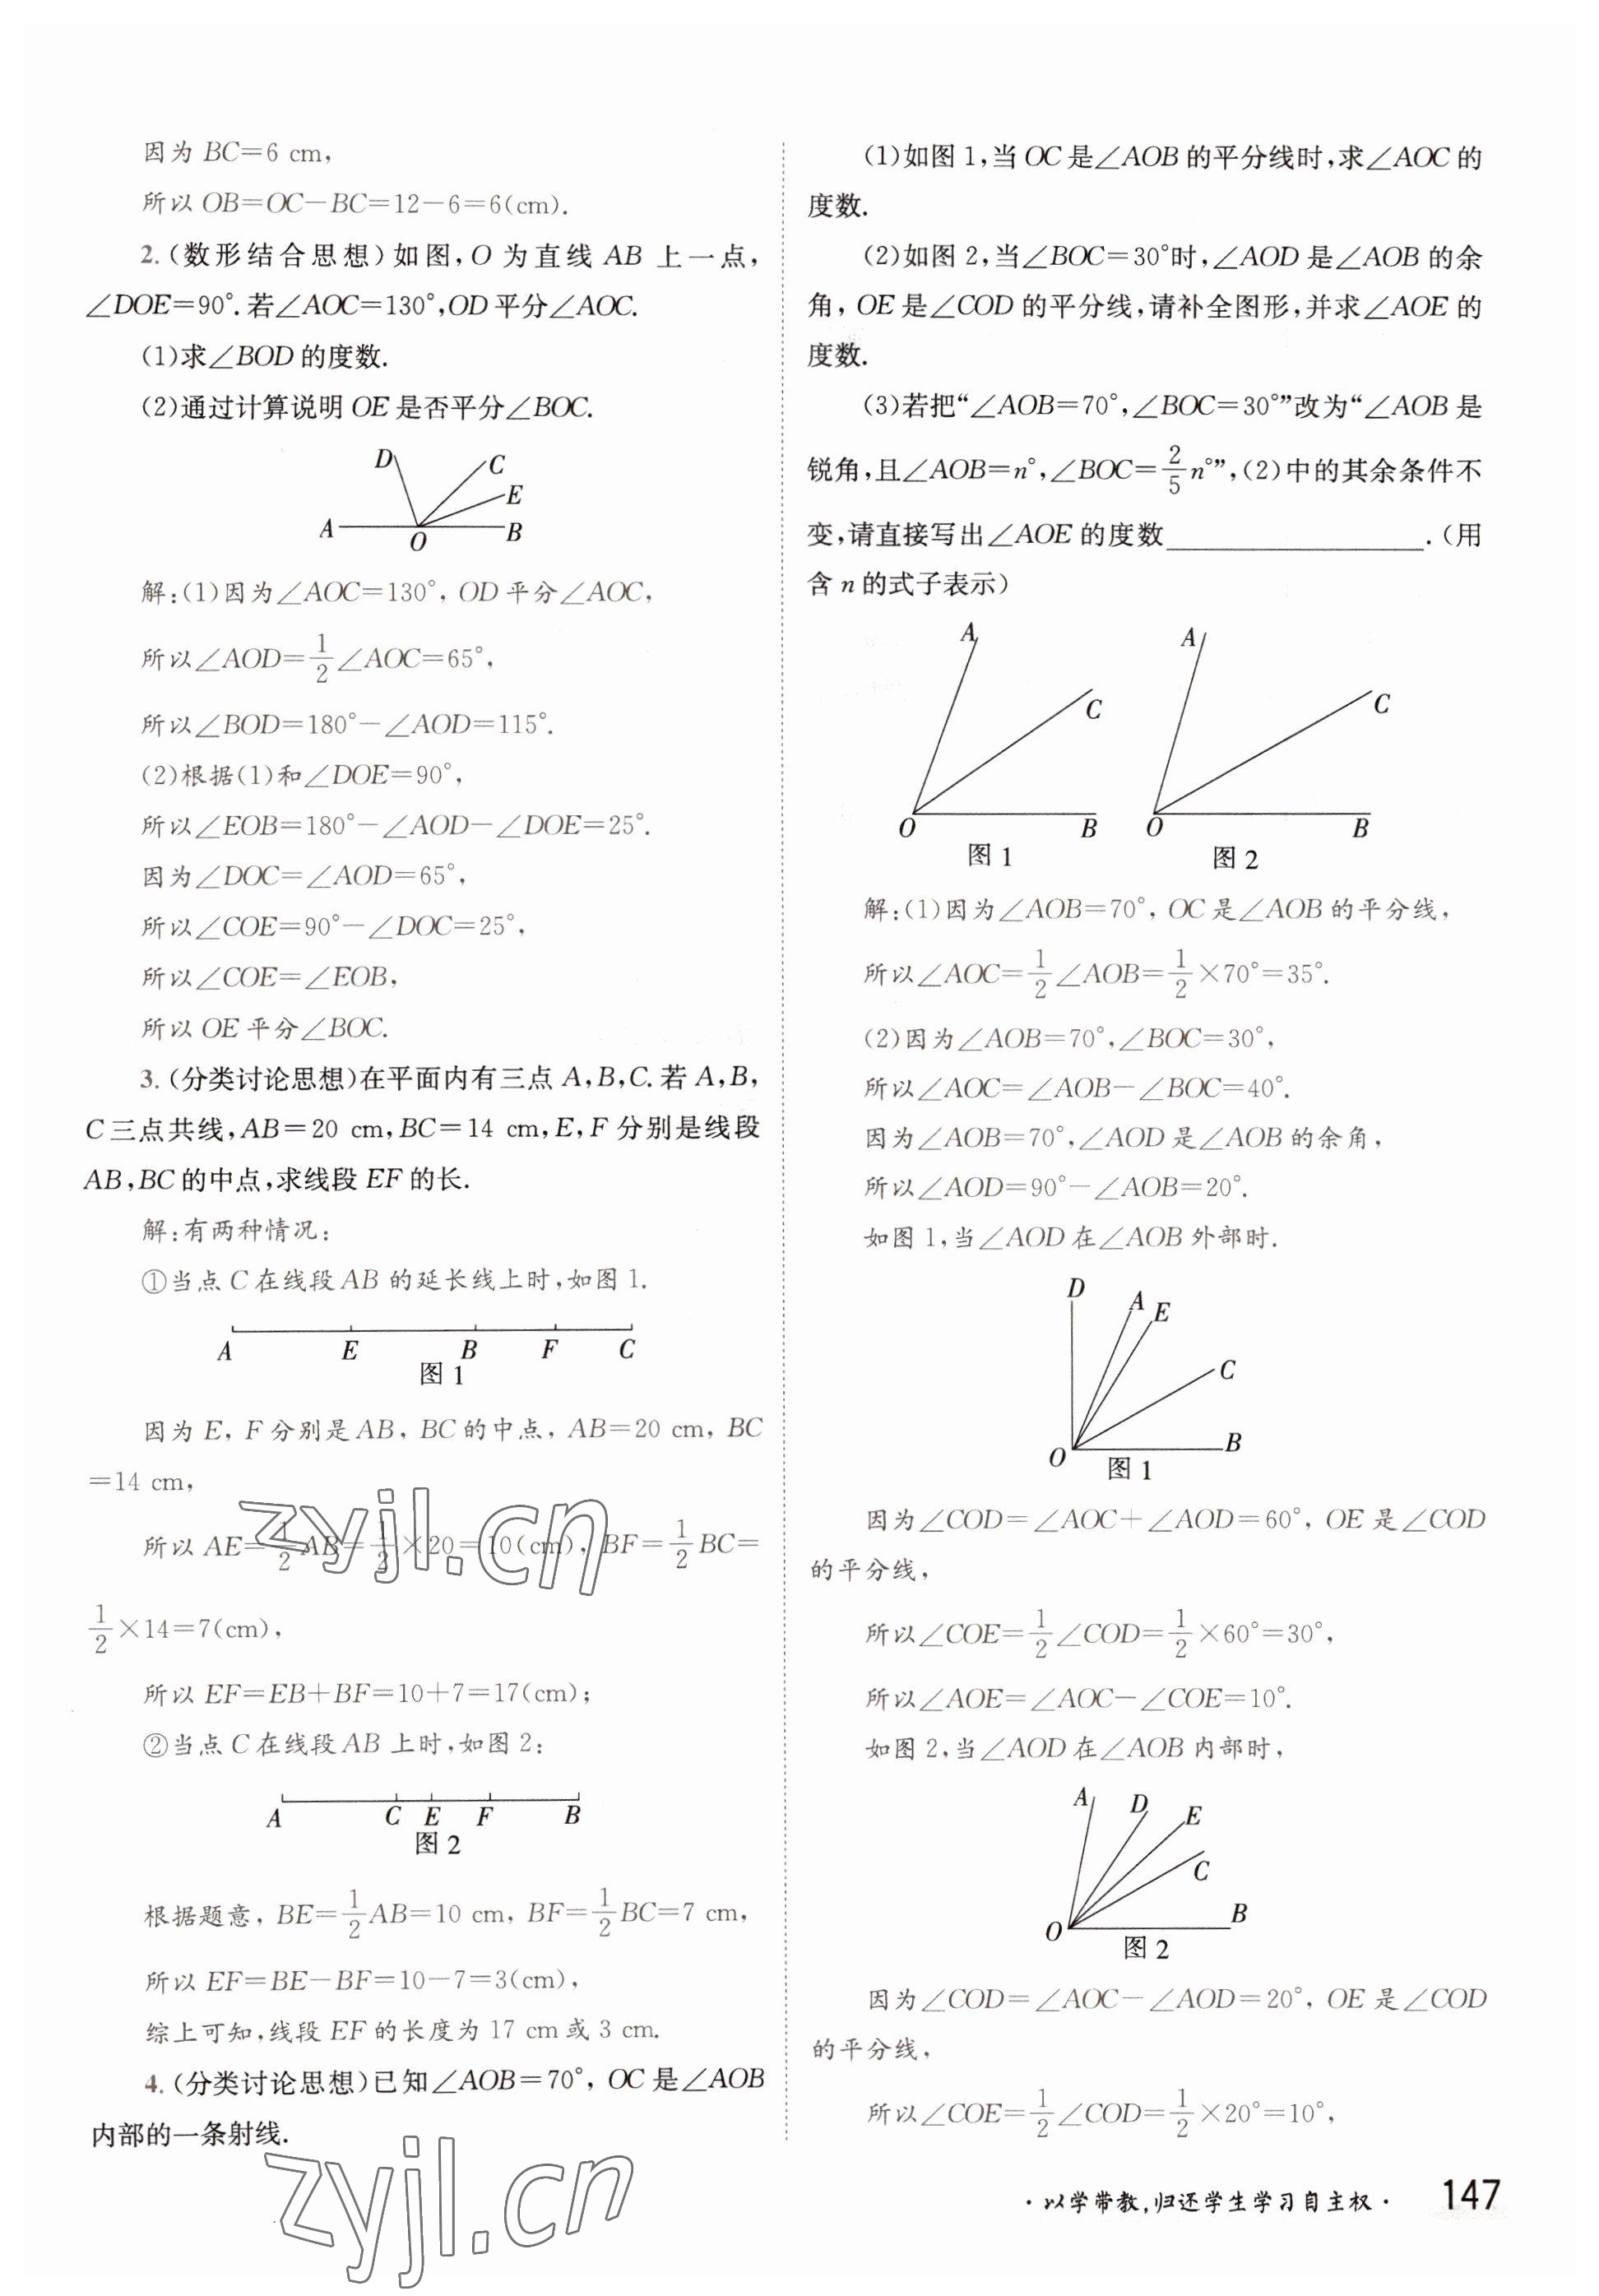 因为 BC=6 cm,
所以 OB=OC-BC=12-6=6(cm).
2.(数形结合思想)如图,O 为直线 AB 上一点,
∠DOE=90°.若∠AOC=130°,OD 平分∠AOC.
(1)求∠BOD 的度数.
(2)通过计算说明 OE 是否平分∠BOC.
D
C
E
A
O
B
解:(1)因为∠AOC=130°, OD 平分∠AOC,
所以∠AOD=1/2∠AOC=65°,
所以∠BOD=180°-∠AOD=115°.
(2)根据(1)和∠DOE=90°,
所以∠EOB=180°-∠AOD-∠DOE=25°.
因为∠DOC=∠AOD=65°,
所以∠COE=90°-∠DOC=25°,
所以∠COE=∠EOB,
所以 OE 平分∠BOC.
3.(分类讨论思想)在平面内有三点 A,B,C.若 A,B,
C 三点共线,AB=20 cm,BC=14 cm,E,F 分别是线段
AB,BC 的中点,求线段 EF 的长.
解:有两种情况:
①当点 C 在线段 AB 的延长线上时,如图 1.
A E B F C
图 1
因为 E, F 分别是 AB, BC 的中点, AB=20 cm, BC
=14 cm,
所以 AE=1/2AB=1/2×20=10(cm), BF=1/2BC=
1/2×14=7(cm),
所以 EF=EB+BF=10+7=17(cm);
②当点 C 在线段 AB 上时,如图 2:
A C E F B
图 2
根据题意, BE=1/2AB=10 cm, BF=1/2BC=7 cm,
所以 EF=BE-BF=10-7=3(cm),
综上可知,线段 EF 的长度为 17 cm 或 3 cm.
4.(分类讨论思想)已知∠AOB=70°, OC 是∠AOB
内部的一条射线.
(1)如图 1,当 OC 是∠AOB 的平分线时,求∠AOC 的
度数.
(2)如图 2,当∠BOC=30°时,∠AOD 是∠AOB 的余
角, OE 是∠COD 的平分线,请补全图形,并求∠AOE 的
度数.
(3)若把“∠AOB=70°,∠BOC=30°”改为“∠AOB 是
锐角,且∠AOB=n°,∠BOC=2/5n°”,(2)中的其余条件不
变,请直接写出∠AOE 的度数________.(用
含 n 的式子表示)
A
C
O
B
图 1
A
C
O
B
图 2
解:(1)因为∠AOB=70°, OC 是∠AOB 的平分线,
所以∠AOC=1/2∠AOB=1/2×70°=35°.
(2)因为∠AOB=70°,∠BOC=30°,
所以∠AOC=∠AOB-∠BOC=40°.
因为∠AOB=70°,∠AOD 是∠AOB 的余角,
所以∠AOD=90°-∠AOB=20°.
如图 1,当∠AOD 在∠AOB 外部时.
D
A
E
C
O
B
图 1
因为∠COD=∠AOC+∠AOD=60°, OE 是∠COD
的平分线,
所以∠COE=1/2∠COD=1/2×60°=30°,
所以∠AOE=∠AOC-∠COE=10°.
如图 2,当∠AOD 在∠AOB 内部时,
A
D
E
C
O
B
图 2
因为∠COD=∠AOC-∠AOD=20°, OE 是∠COD
的平分线,
所以∠COE=1/2∠COD=1/2×20°=10°,
·以学带教,归还学生学习自主权· 147
zyjl.cn
zyjl.cn